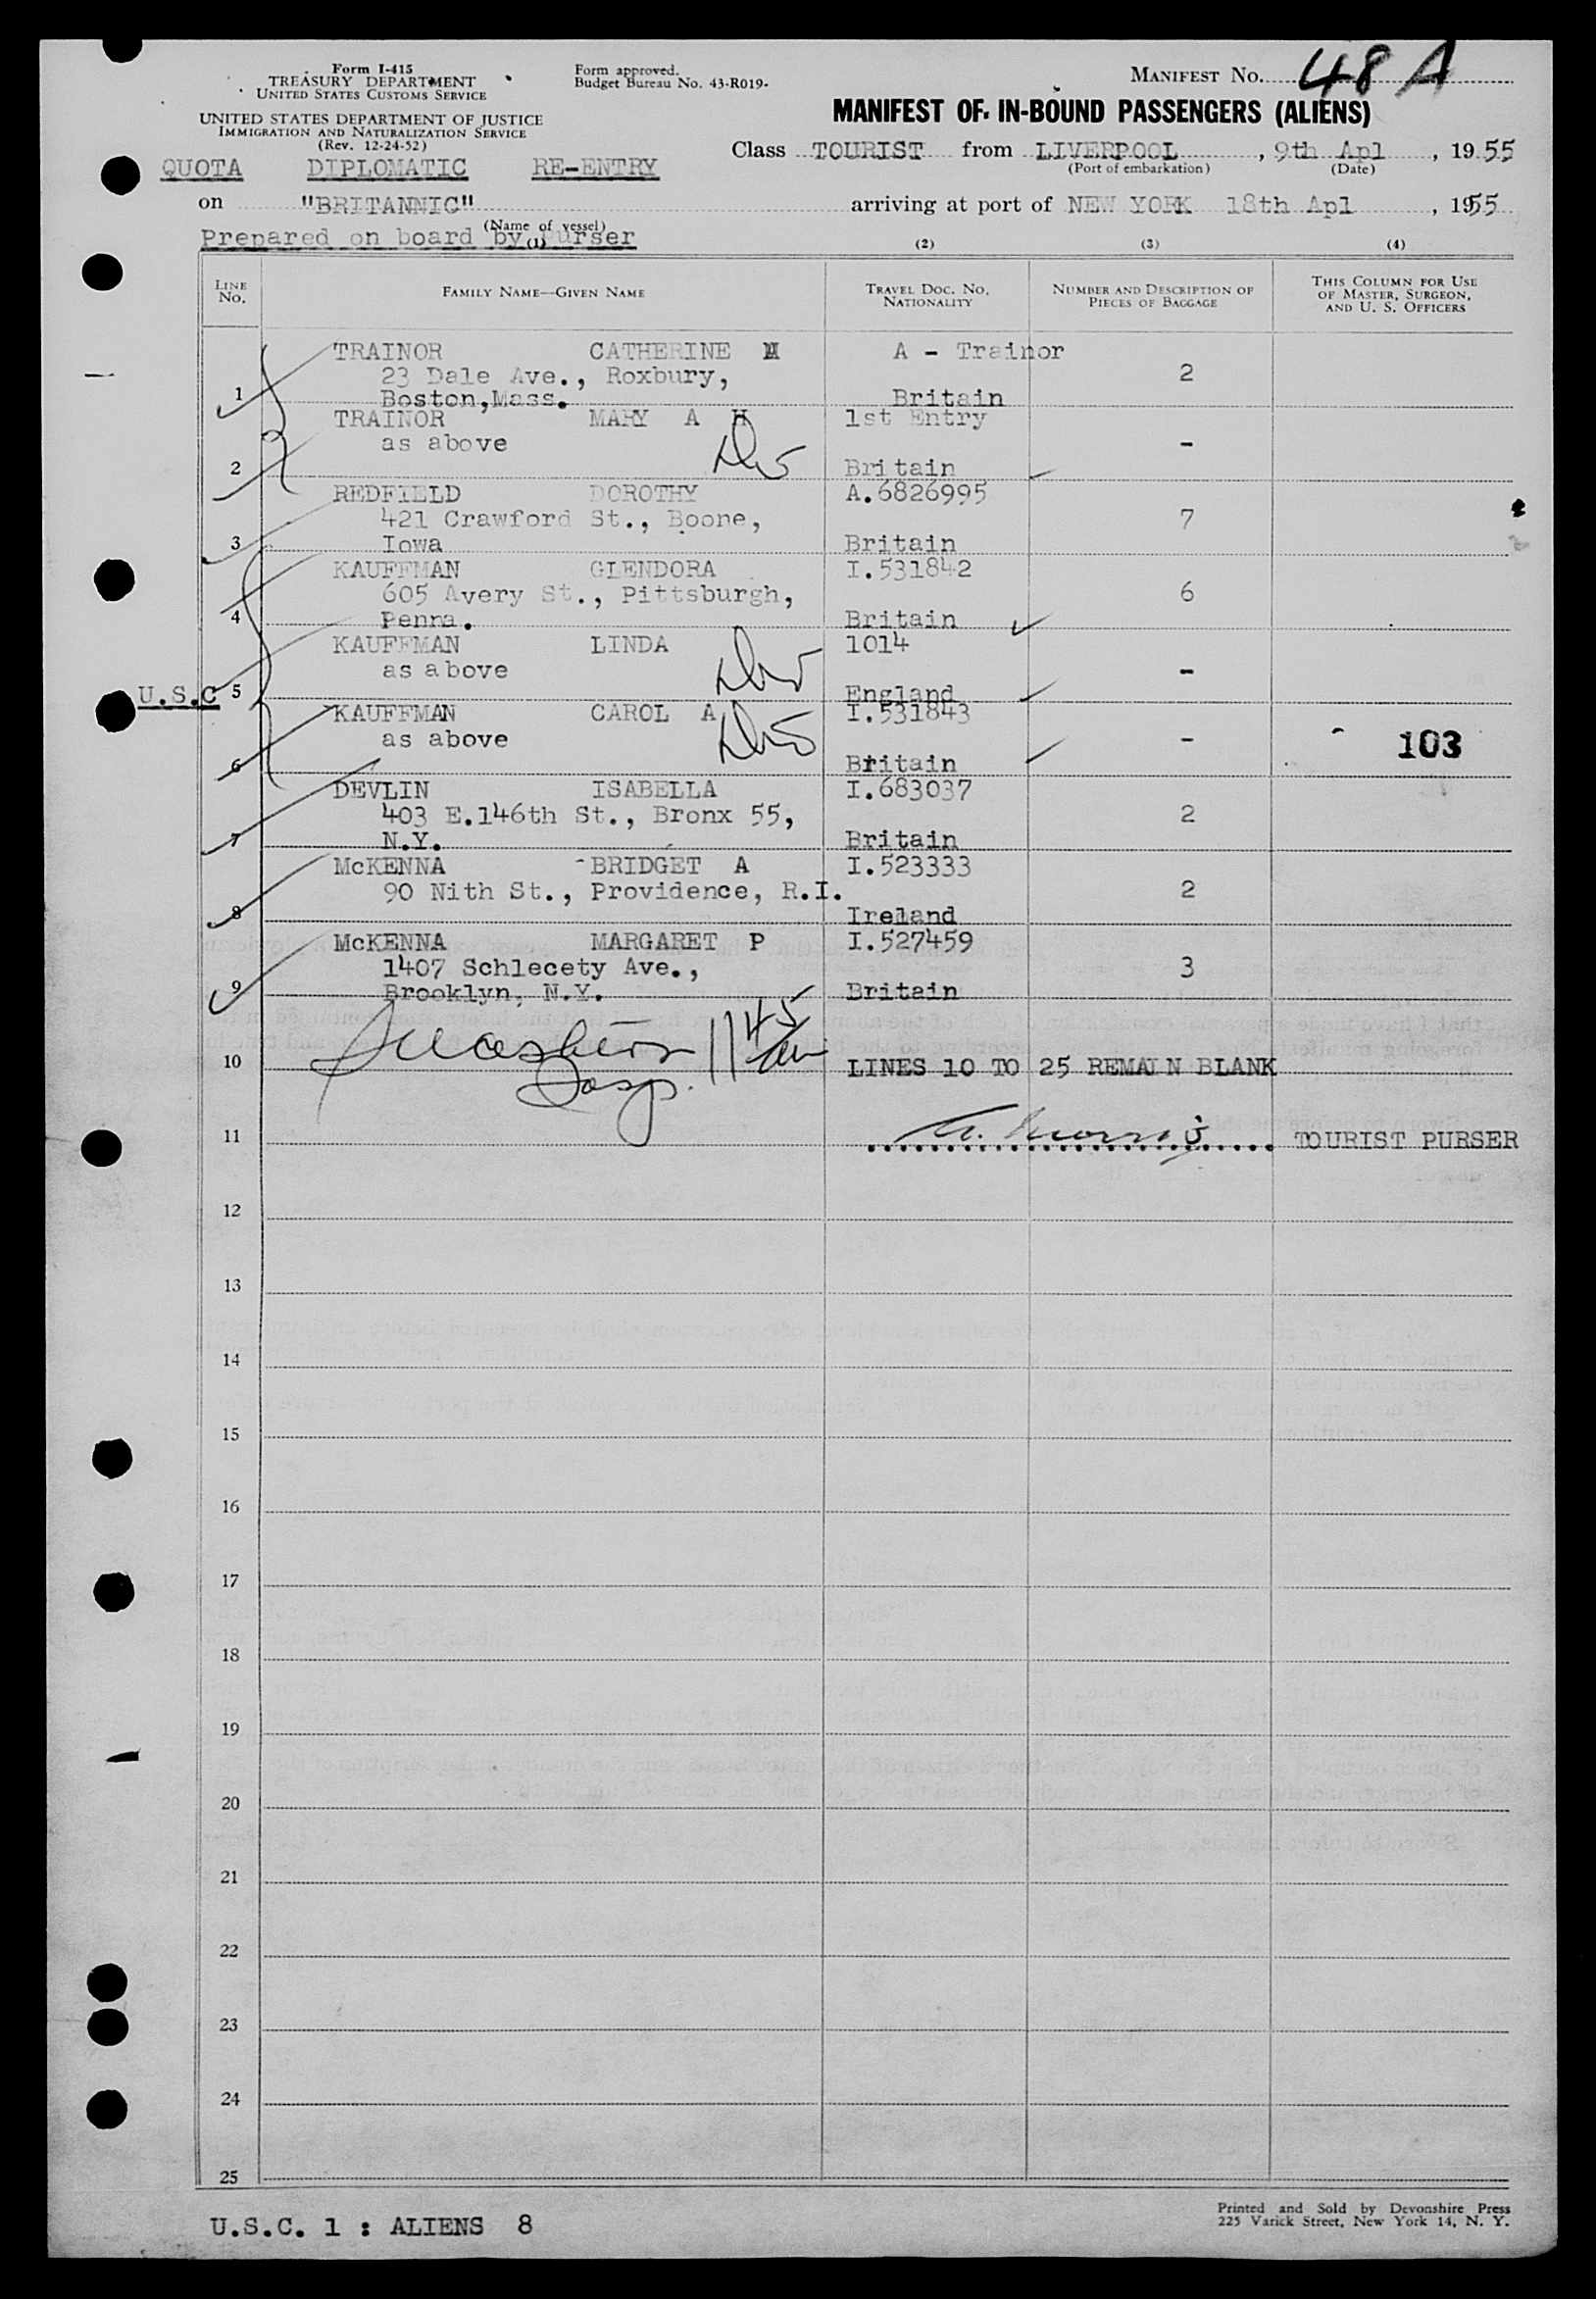 Form I-415
TREASURY DEPARTMENT
UNITED STATES CUSTOMS SERVICE
UNITED STATES DEPARTMENT OF JUSTICE
IMMIGRATION AND NATURALIZATION SERVICE
(Rev. 12-24-52)
Form approved.
Budget Bureau No. 43-R019-
MANIFEST NO. 48 A
MANIFEST OF IN-BOUND PASSENGERS (ALIENS)
Class TOURIST from LIVERPOOL, 9th Apl, 1955
(Port of embarkation) (Date)
QUOTA DIPLOMATIC RE-ENTRY
on "BRITANNIC" arriving at port of NEW YORK 18th Apl, 1955
(Name of vessel)
Prepared on board by Purser
(1) (2) (3) (4)
LINE NO. FAMILY NAME—GIVEN NAME TRAVEL DOC. NO. NATIONALITY NUMBER AND DESCRIPTION OF PIECES OF BAGGAGE THIS COLUMN FOR USE OF MASTER, SURGEON, AND U. S. OFFICERS
TRAINOR CATHERINE M A - Trainor
23 Dale Ave., Roxbury, 2
1 Boston,Mass. Britain
TRAINOR MARY A H 1st Entry
as above -
2 Britain
REDFIELD DOROTHY A.6826995
421 Crawford St., Boone, 7
3 Iowa Britain
KAUFFMAN GLENDORA I.531842
605 Avery St., Pittsburgh, 6
4 Penna. Britain
KAUFFMAN LINDA 1014
as above -
U.S.C 5 England
KAUFFMAN CAROL A I.531843
as above - 103
6 Britain
DEVLIN ISABELLA I.683037
403 E.146th St., Bronx 55, 2
7 N.Y. Britain
McKENNA BRIDGET A I.523333
90 Nith St., Providence, R.I. 2
8 Ireland
McKENNA MARGARET P I.527459
1407 Schlecety Ave., 3
9 Brooklyn, N.Y. Britain
10 LINES 10 TO 25 REMAIN BLANK
11 TOURIST PURSER
12
13
14
15
16
17
18
19
20
21
22
23
24
25
U.S.C. 1 : ALIENS 8
Printed and Sold by Devonshire Press
225 Varick Street, New York 14, N. Y.